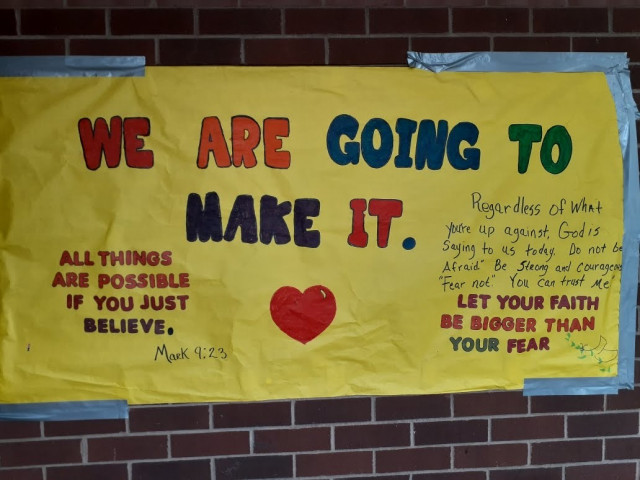 WE ARE GOING TO
MAKE IT.
ALL THINGS
ARE POSSIBLE
IF YOU JUST
BELIEVE.
Mark 9:23
Regardless of What
you're up against, God is
Saying to us today, Do not be
Afraid" Be Strong and Courageous
"Fear not." You can trust Me"
LET YOUR FAITH
BE BIGGER THAN
YOUR FEAR